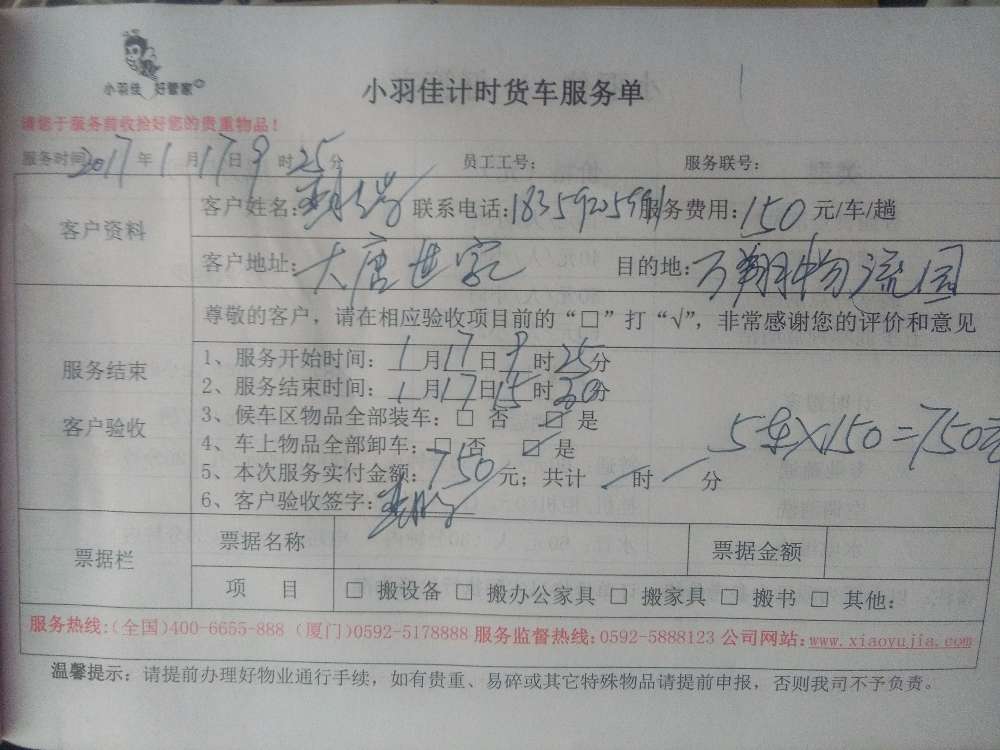 小羽佳 好管家
小羽佳计时货车服务单
请您于服务前收拾好您的贵重物品！
服务时间2017年1月17日9时25分 员工工号： 服务联号：
客户资料
客户姓名： 联系电话：18359205991 服务费用：150元/车/趟
客户地址：大唐世家 目的地：万翔物流园
服务结束
客户验收
尊敬的客户，请在相应验收项目前的“□”打“√”，非常感谢您的评价和意见
1、服务开始时间：1月17日9时25分
2、服务结束时间：1月17日15时30分
3、候车区物品全部装车：□ 否 ☑ 是
4、车上物品全部卸车：□ 否 ☑ 是
5车X150=750元
5、本次服务实付金额：750元；共计 时 分
6、客户验收签字：
票据栏
票据名称 票据金额
项 目 □ 搬设备 □ 搬办公家具 □ 搬家具 □ 搬书 □ 其他：
服务热线:(全国)400-6655-888 (厦门)0592-5178888 服务监督热线:0592-5888123 公司网站:www.xiaoyujia.com
温馨提示：请提前办理好物业通行手续，如有贵重、易碎或其它特殊物品请提前申报，否则我司不予负责。